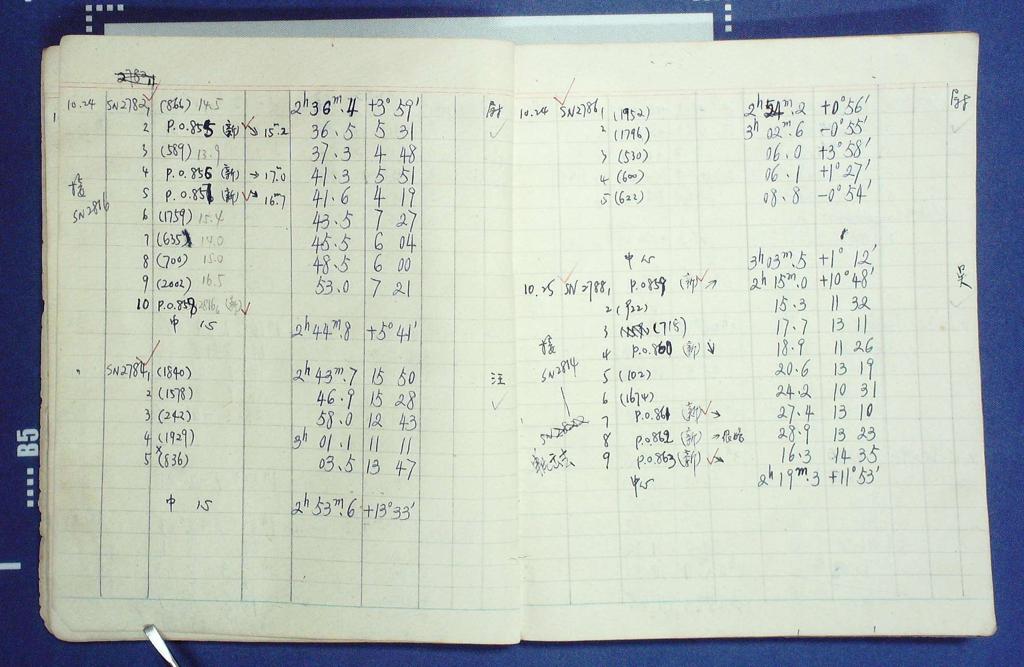 10.24 SN2782 1 (866) 14.5 2h 36m.4 +3° 59′
2 P.O.855 (新) → 15.2 36.5 5 31
3 (589) 13.9 37.3 4 48
4 P.O.856 (新) → 17.0 41.3 5 51
接 5 P.O.857 (新) → 16.7 41.6 4 19
SN2816 6 (1759) 15.4 43.5 7 27
7 (635) 14.0 45.5 6 04
8 (700) 15.0 48.5 6 00
9 (2002) 16.5 53.0 7 21
10 P.O.858 (新)
中心 2h 44m.8 +5° 41′
SN2784 1 (1840) 2h 43m.7 15 50 汪
2 (1578) 46.9 15 28
3 (242) 58.0 12 43
4 (1929) 3h 01.1 11 11
5 (836) 03.5 13 47
中心 2h 53m.6 +13° 33′
10.24 SN2786 1 (1952) 2h 54m.2 +0° 56′
2 (1796) 3h 02m.6 -0° 55′
3 (530) 06.0 +3° 58′
4 (600) 06.1 +1° 27′
5 (622) 08.8 -0° 54′
中心 3h 03m.5 +1° 12′
10.25 SN2788 1 P.O.859 (新) → 2h 15m.0 +10° 48′ 吴
2 (922) 15.3 11 32
3 (718) 17.7 13 11
接 4 P.O.860 (新) 18.9 11 26
SN2814 5 (102) 20.6 13 19
6 (1674) 24.2 10 31
7 P.O.861 (新) → 27.4 13 10
8 P.O.862 (新) → 28.9 13 23
9 P.O.863 (新) → 16.3 14 35
中心 2h 19m.3 +11° 53′
B5